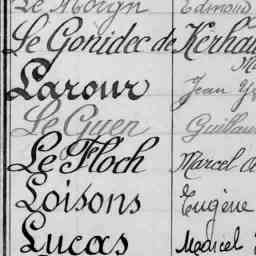 Le Moign Edmond
Le Gonidec de Kerhau
Larour Jean Y
Le Guen Guillau
Le Floch Marcel d
Loisons Eugène
Lucas Marcel